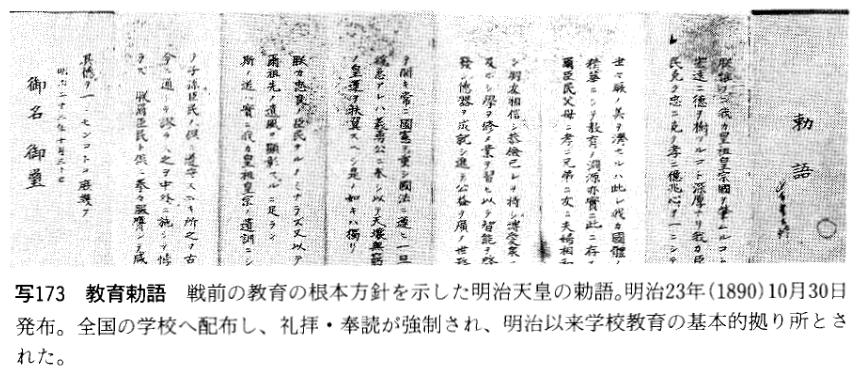 勅語
朕惟フニ我カ皇祖皇宗國ヲ肇ムルコト
宏遠ニ德ヲ樹ツルコト深厚ナリ我カ臣
民克ク忠ニ克ク孝ニ億兆心ヲ一ニシテ
世々厥ノ美ヲ濟セルハ此レ我カ國體ノ
精華ニシテ教育ノ淵源亦實ニ此ニ存ス
爾臣民父母ニ孝ニ兄弟ニ友ニ夫婦相和
シ朋友相信シ恭儉己レヲ持シ博愛衆ニ
及ホシ學ヲ修メ業ヲ習ヒ以テ智能ヲ啓
發シ德器ヲ成就シ進テ公益ヲ廣メ世務
ヲ開キ常ニ國憲ヲ重シ國法ニ遵ヒ一旦
緩急アレハ義勇公ニ奉シ以テ天壤無窮
ノ皇運ヲ扶翼スヘシ是ノ如キハ獨リ
朕カ忠良ノ臣民タルノミナラス又以テ
爾祖先ノ遺風ヲ顯彰スルニ足ラン
斯ノ道ハ實ニ我カ皇祖皇宗ノ遺訓ニシ
ノ子孫臣民ノ俱ニ遵守スヘキ所之ヲ古
今ニ通シテ謬ラス之ヲ中外ニ施シテ悖
ラス朕爾臣民ト俱ニ拳々服膺シテ咸
其德ヲ一ニセンコトヲ庶幾フ
明治二十三年十月三十日
御名御璽
写173 教育勅語 戦前の教育の根本方針を示した明治天皇の勅語。明治23年(1890)10月30日
発布。全国の学校へ配布し、礼拝・奉読が強制され、明治以来学校教育の基本的拠り所とさ
れた。